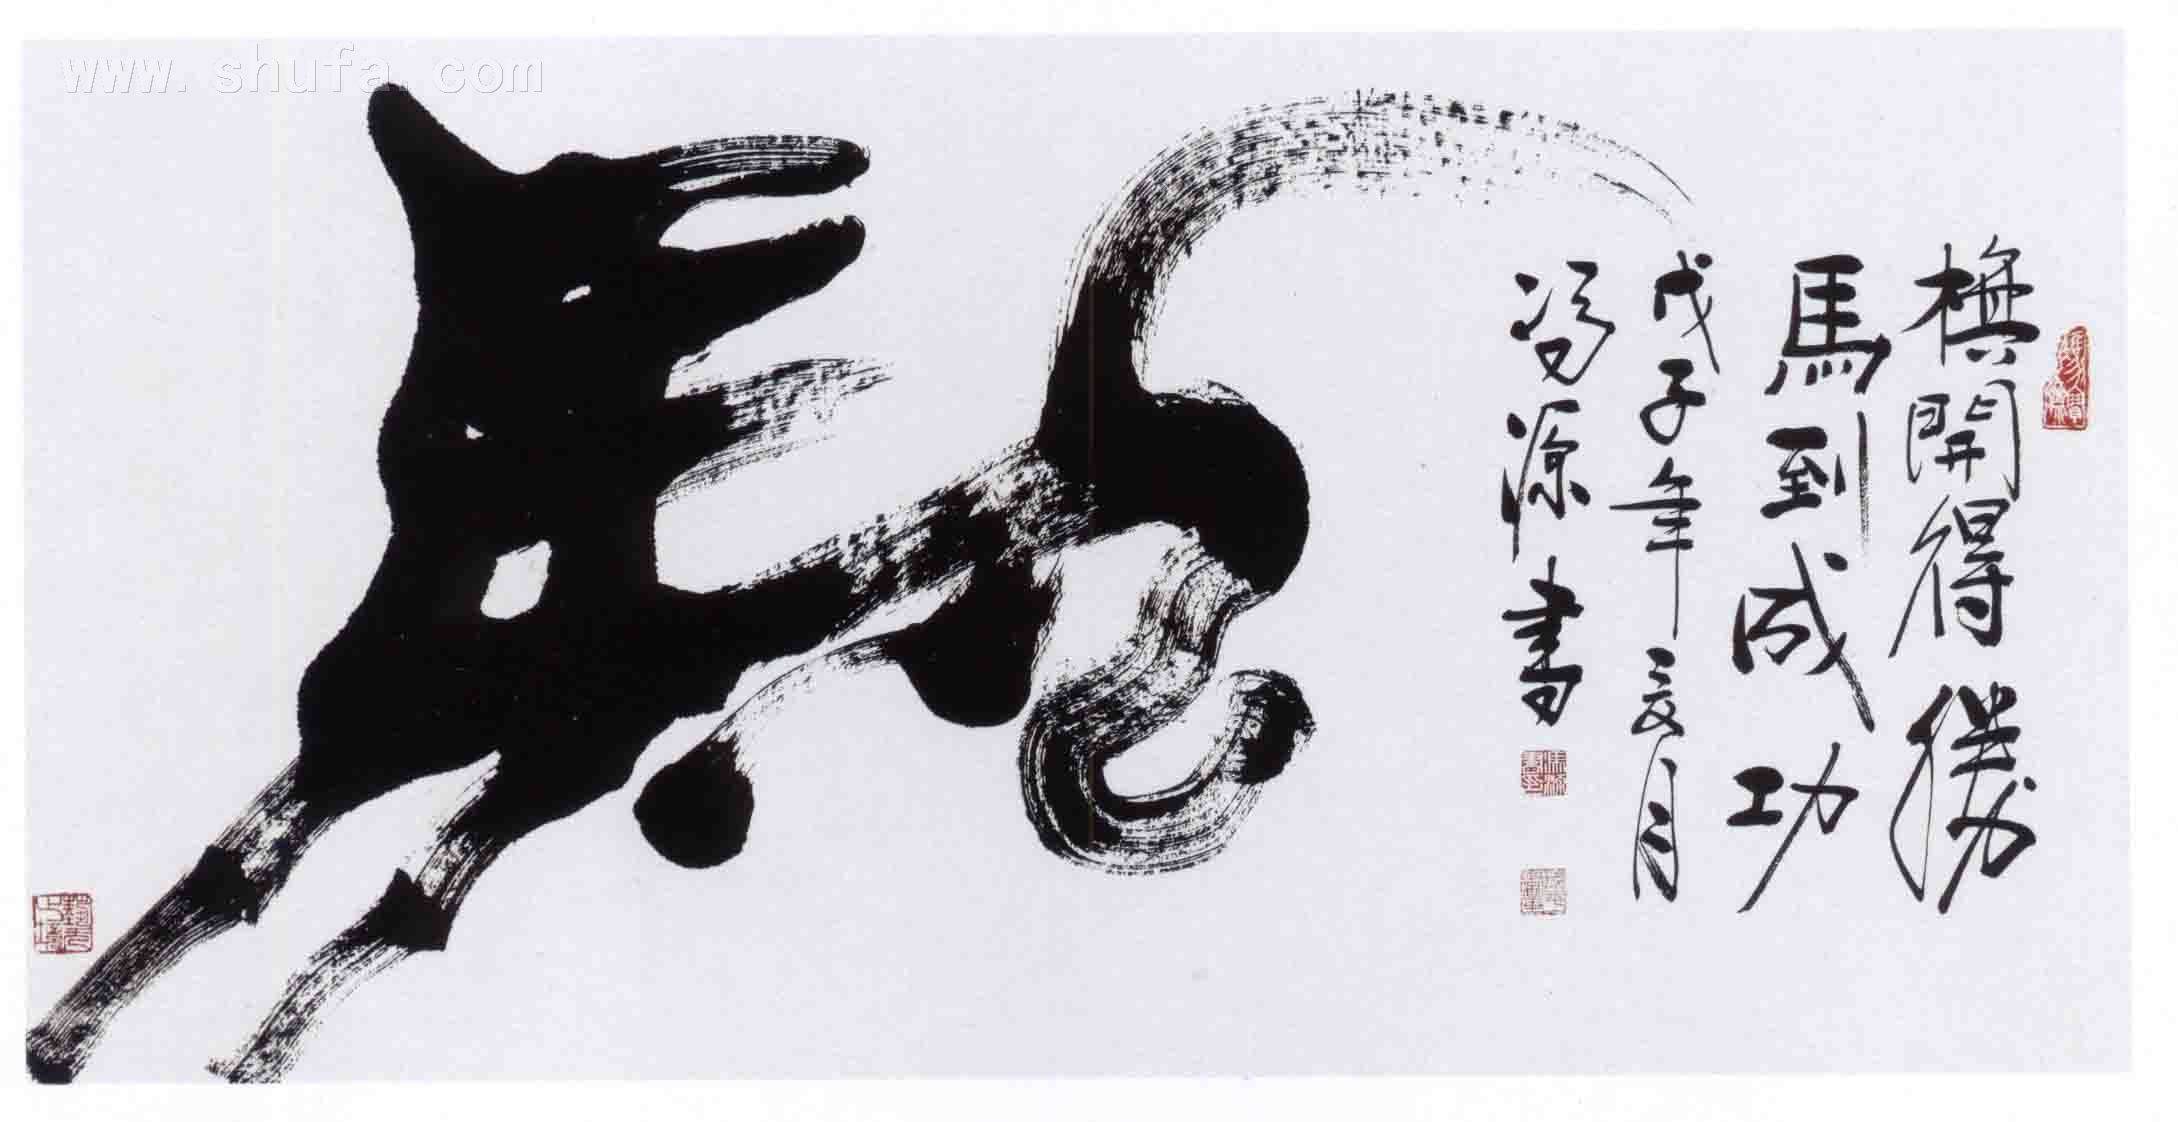 www.shufa.com
旗開得勝
馬到成功
戊子年亥月
冯源書